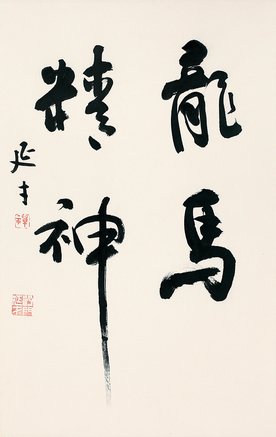 龍馬
精神
延年